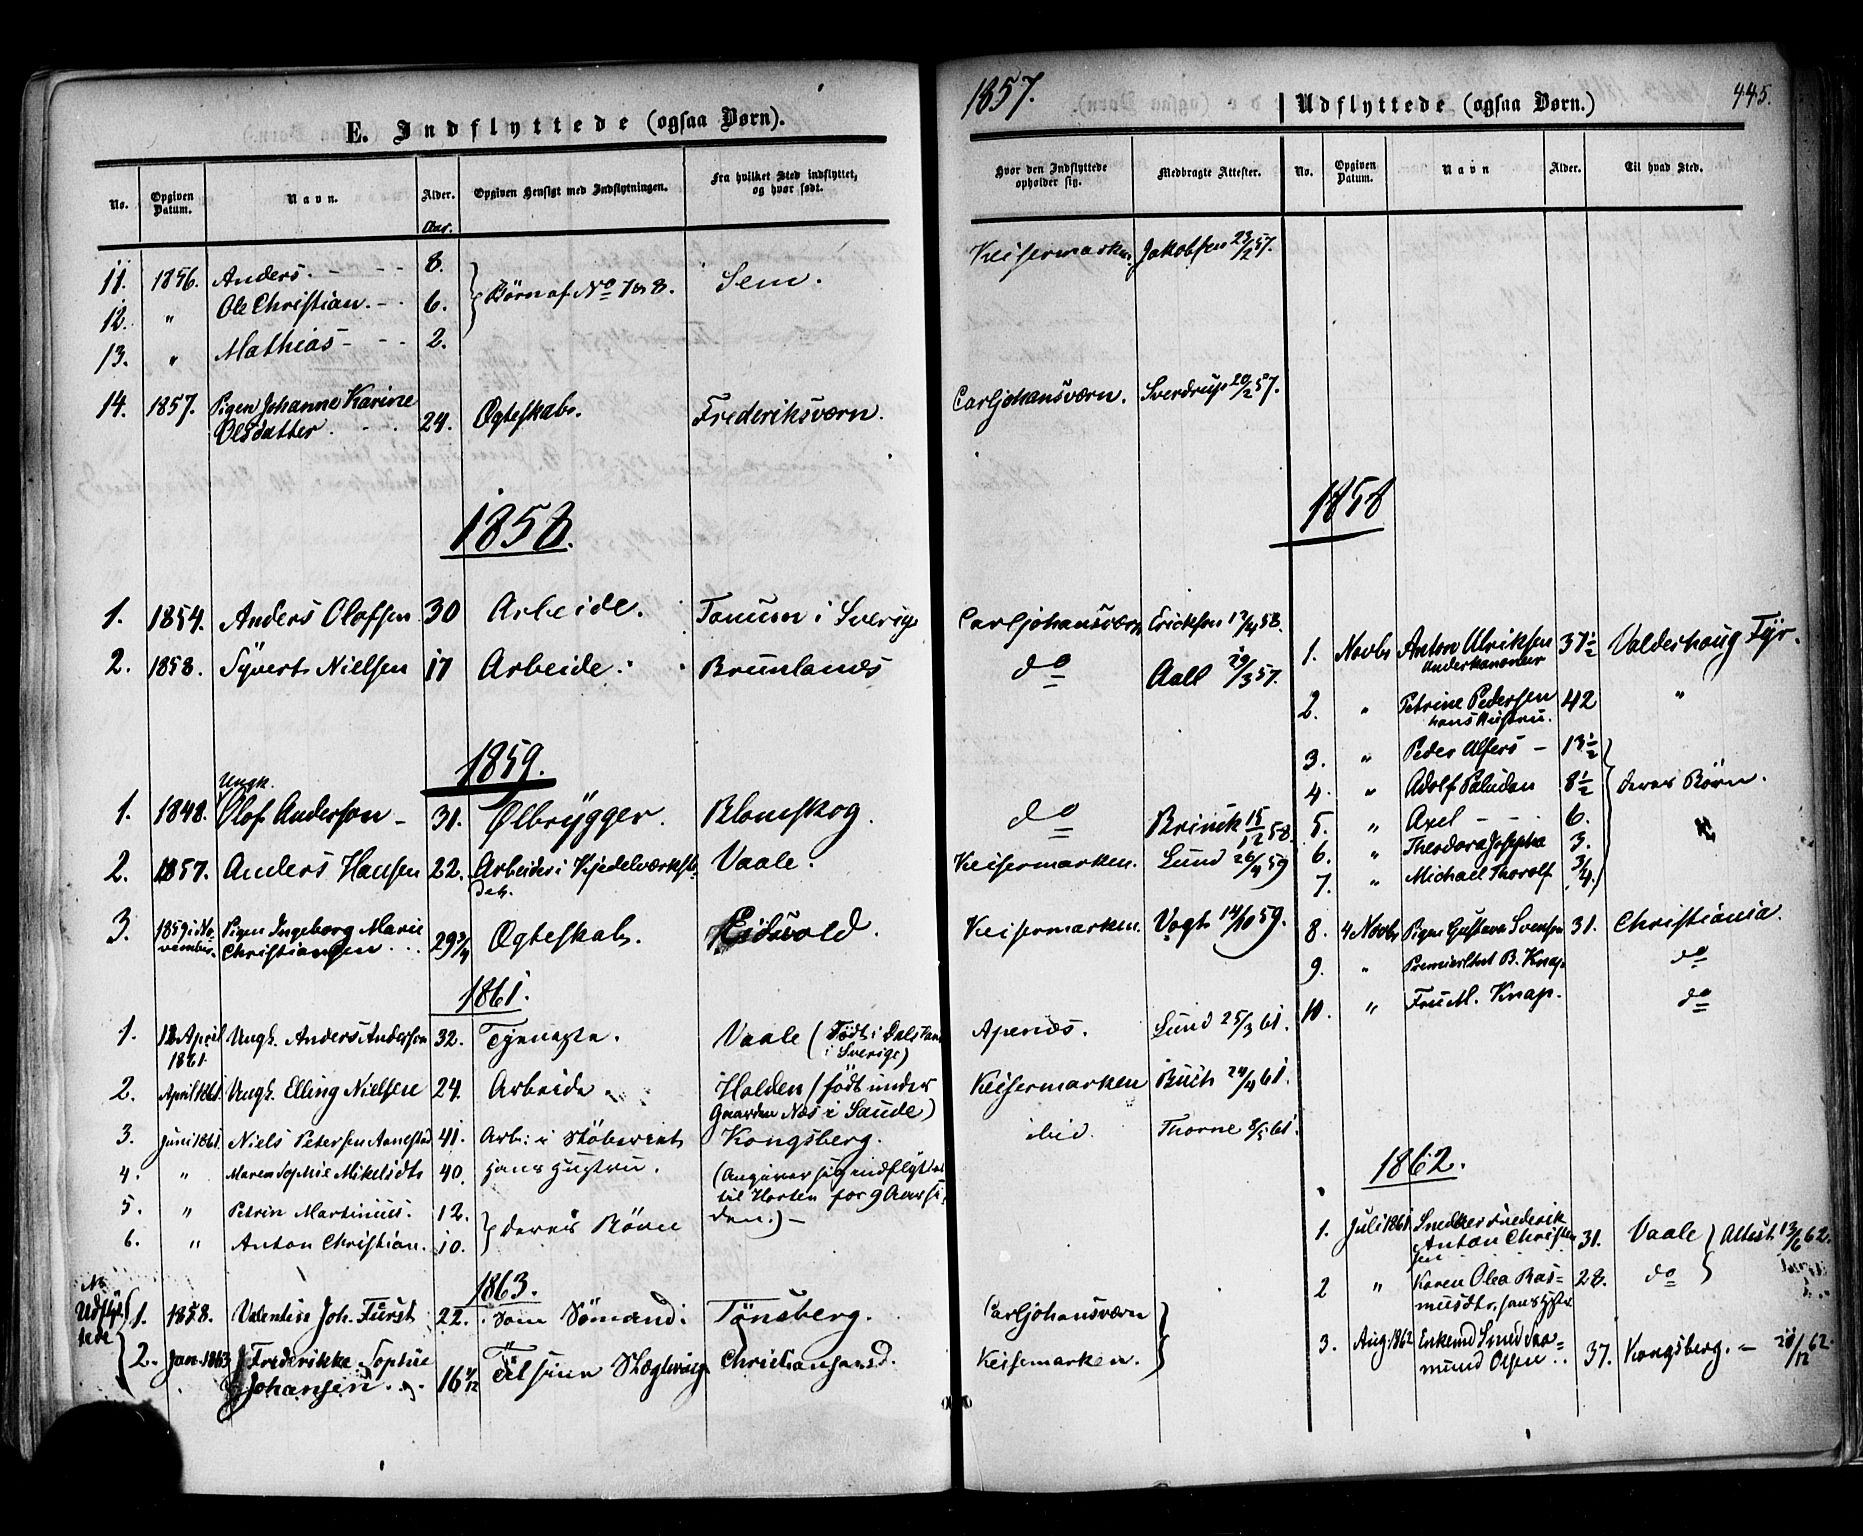 E. Indflyttede (ogsaa Børn).
No. Opgiven Datum. Navn. Alder. Opgiven Hensigt med Indflytningen. Fra hvilket Sted indflyttet, og hvor født.
Aar.
11. 1856. Anders. - - - 8.
12. " Ole Christian. - - 6. } Børn af No 7 & 8. Sem.
13. " Mathias - - - 2.
14. 1857. Pigen Johanne Karine
Olsdatter. - - - 24. Ægteskab. Frederiksværn.
1858.
1. 1854. Anders Olofsen 30 Arbeide. Tanum i Sverige
2. 1858. Syvert Nielsen 17 Arbeide. Brunlanæs
1859.
Ungk.
1. 1848. Olof Anderson - 31. Ølbrygger. Blomskog.
2. 1857. Anders Hansen 22. Arbeide i Kjedelværkste-
det. Vaale.
3. 1859 i No-
vember. Pigen Ingeborg Marie
Christiansen 29 3/4 Ægteskab. Eidsvold.
1861.
1. 12 April
1861 Ungk. Anders Anderson 32. Tjeneste. Vaale (Født i Dalsland
i Sverige)
2. April 1861. Ungk. Elling Nielsen 24. Arbeide. Holden (født under
Gaarden Næs i Saude)
3. Juni 1861. Niels Petersen Aanestad 41. Arb: i Støberiet Kongsberg.
4. " Maren Sophie Mikelsdtr 40. hans Hustru. (Angiver sig indflyttet
til Horten for 9 Aar si-
den.) -
5. " Petrin Martinius. 12.
6. " Anton Christian. 10. } deres Børn
1863.
Udflyt-
tede
1. 1858. Valentin Joh. Fürst 22. som Sømand. Tönsberg.
2. Jan. 1863 Frederikke Sophie
Johansen. 16 Til sine Slægtninge Christiansand.
1857.
Hvor den Indflyttede opholder sig. Medbragte Attester.
Keisermarken. Jakobsen 23/2 57.
Carljohansværn. Sverdrup 20/2 57.
Carljohansværn Erickson 17/4 58.
do Aall 29/3 57.
do Brinck 15/12 58.
Keisermarken. Lund 26/4 59
Keisermarken. Vogt 14/10 59.
Apenæs. Lund 25/3 61.
Keisermarken Buch 24/4 61.
ibid. Thorne 8/5 61.
Carljohansværn
Keisermarken.
Udflyttede (ogsaa Børn.) 445.
No. Opgiven Datum. Navn Alder. Til hvad Sted.
1858
1. Novbr Anton Ulriksen
Underkanoneer 37 1/2 Valderhaug Fyr.
2. " Petrine Pedersen
hans Hustru. 42 "
3. " Peder Alfers - 13 1/2
4. " Adolf Paludan 8 1/2 } deres Børn.
5. " Axel - - - 6.
6. " Theodora Josepha 3.
7. " Michael Thorolf 3/4.
8. 4 Novbr Pigen Gustava Svensen 31. Christiania.
9. " Premierltnt B. Knap do
10. " Fru M. Knap. do
1862.
1. Juli 1861 Snedker Frederik
Anton Christen-
sen 31. Vaale } Attest 13/6 62.
2 " Karen Olea Ras-
musdtr, hans Hustru 28. do
3. Aug. 1862 Enkemd Smed Saa-
mund Olsen 37. Kongsberg. - 20/12 62.